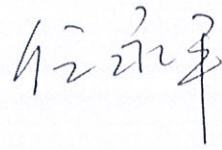 任永军